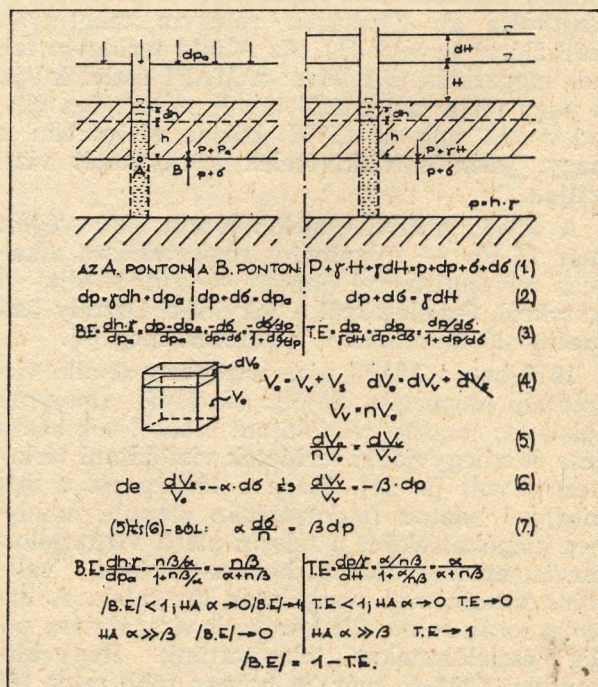 dpa
dH
H
dh
h
dh
h
p+pa
A B
p+σ
p+γH
p+σ
p=h·γ
AZ A. PONTON A B. PONTON P+γ·H+γdH=p+dp+σ+dσ (1.)
dp=γdh+dpa dp+dσ=dpa dp+dσ=γdH (2.)
B.E=dh·γ/dpa=dp-dpa/dpa=-dσ/dp+dσ=-dσ/dp/1+dσ/dp T.E=dp/γdH=dp/dp+dσ=dp/dσ/1+dp/dσ (3)
dV₀
V₀
V₀=Vv+Vs dV₀=dVv+dVs (4.)
Vv=nV₀
dV₀/nV₀=dVv/Vv (5.)
de dV₀/V₀=-α·dσ ÉS dVv/Vv=-β·dp (6.)
(5)ÉS(6)-BÓL: α dσ/n = βdp (7.)
B.E=dh·γ/dpa=-nβ/α/1+nβ/α=-nβ/α+nβ T.E=dp/γ/dH=α/nβ/1+α/nβ=α/α+nβ
/B.E/<1; HA α→0 /B.E/→1 T.E<1; HA α→0 T.E→0
HA α≫β /B.E/→0 HA α≫β T.E→1
/B.E/ = 1-T.E.